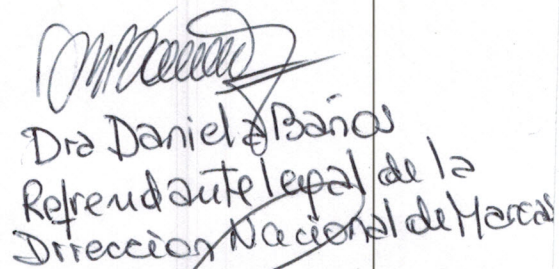 Dra Daniela Baños
Refrendante legal de la
Dirección Nacional de Marcas